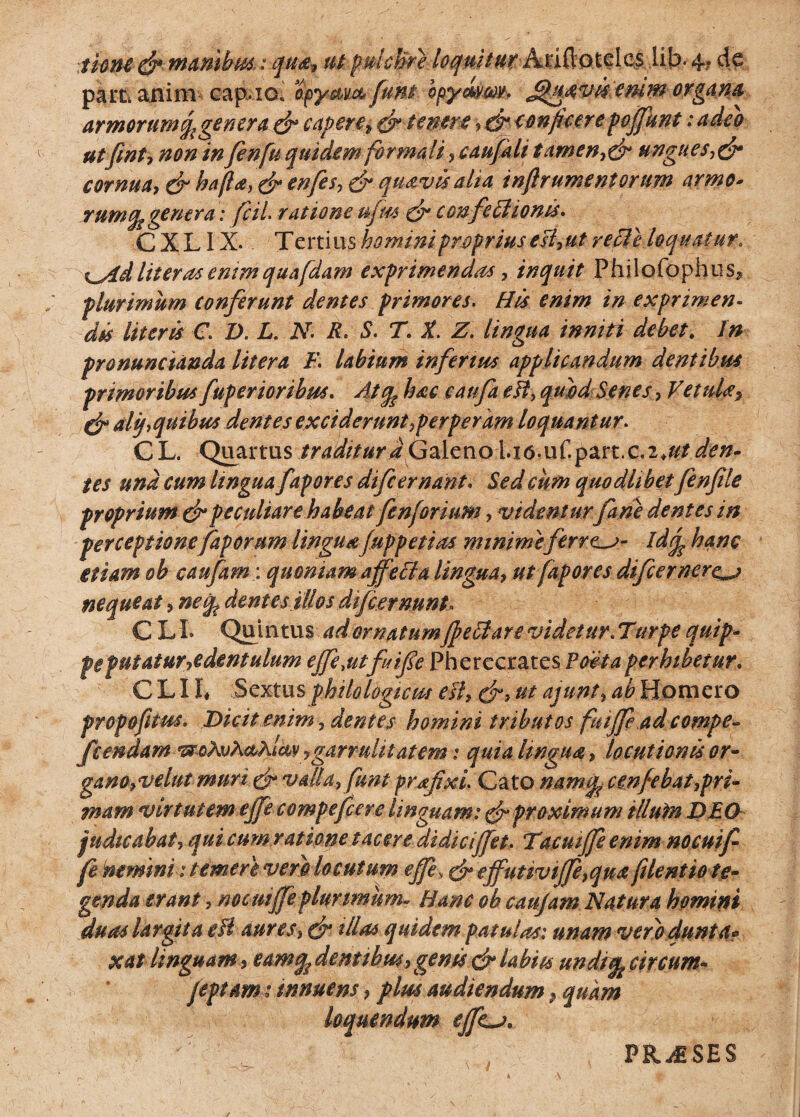 tione & manibus : quæ, ut pulchrè loquitur Ariſtoteles lib. 4. de
part. anim. cap. 10. ὄργανα ſunt ὀργάνων. Quævis enim organa
armorumq́ genera & capere, & tenere, & conficere poſſunt : adeò
ut ſint, non in ſenſu quidem formali, cauſali tamen, & ungues, &
cornua, & haſtæ, & enſes, & quævis alia inſtrumentorum armo-
rumq́ genera : ſcil. ratione uſus & confectionis.
CXLIX. Tertius homini proprius eſt, ut rectè loquatur.
Ad literas enim quaſdam exprimendas, inquit Philoſophus,
plurimùm conferunt dentes primores. His enim in exprimen-
dis literis C. D. L. N. R. S. T. X. Z. lingua inniti debet. In
pronuncianda litera F. labium inferius applicandum dentibus
primoribus ſuperioribus. Atq́ hæc cauſa eſt, quòd Senes, Vetulæ,
& alij, quibus dentes exciderunt, perperàm loquantur.
CL. Quartus traditur à Galeno l. 16. uſ. part. c. 2. ut den-
tes unà cum lingua ſapores diſcernant. Sed cùm quodlibet ſenſile
proprium & peculiare habeat ſenſorium, videntur ſanè dentes in
perceptione ſaporum linguæ ſuppetias minimè ferre. Idq́ hanc
etiam ob cauſam : quoniam affecta lingua, ut ſapores diſcernere
nequeat, neq́ dentes illos diſcernunt.
CLI. Quintus ad ornatum ſpectare videtur. Turpe quip-
pe putatur, edentulum eſſe, ut fuiſſe Pherecrates Poëta perhibetur.
CLII. Sextus philologicus eſt, &, ut ajunt, ab Homero
propoſitus. Dicit enim, dentes homini tributos fuiſſe ad compe-
ſcendam πολυλαλίαν, garrulitatem : quia linguæ, locutionis or-
gano, velut muri & valla, ſunt præfixi. Cato namq́ cenſebat, pri-
mam virtutem eſſe compeſcere linguam : & proximum illum DEO
judicabat, qui cum ratione tacere didiciſſet. Tacuiſſe enim nocuiſ-
ſe nemini : temerè verò locutum eſſe, & effutiviſſe, quæ ſilentio te-
genda erant, nocuiſſe plurimùm. Hanc ob cauſam Natura homini
duas largita eſt aures, & illas quidem patulas : unam verò dunta-
xat linguam, eamq́ dentibus, genis & labiis undiq́ circum-
ſeptam : innuens, plus audiendum, quàm
loquendum eſſe.
PRÆSES